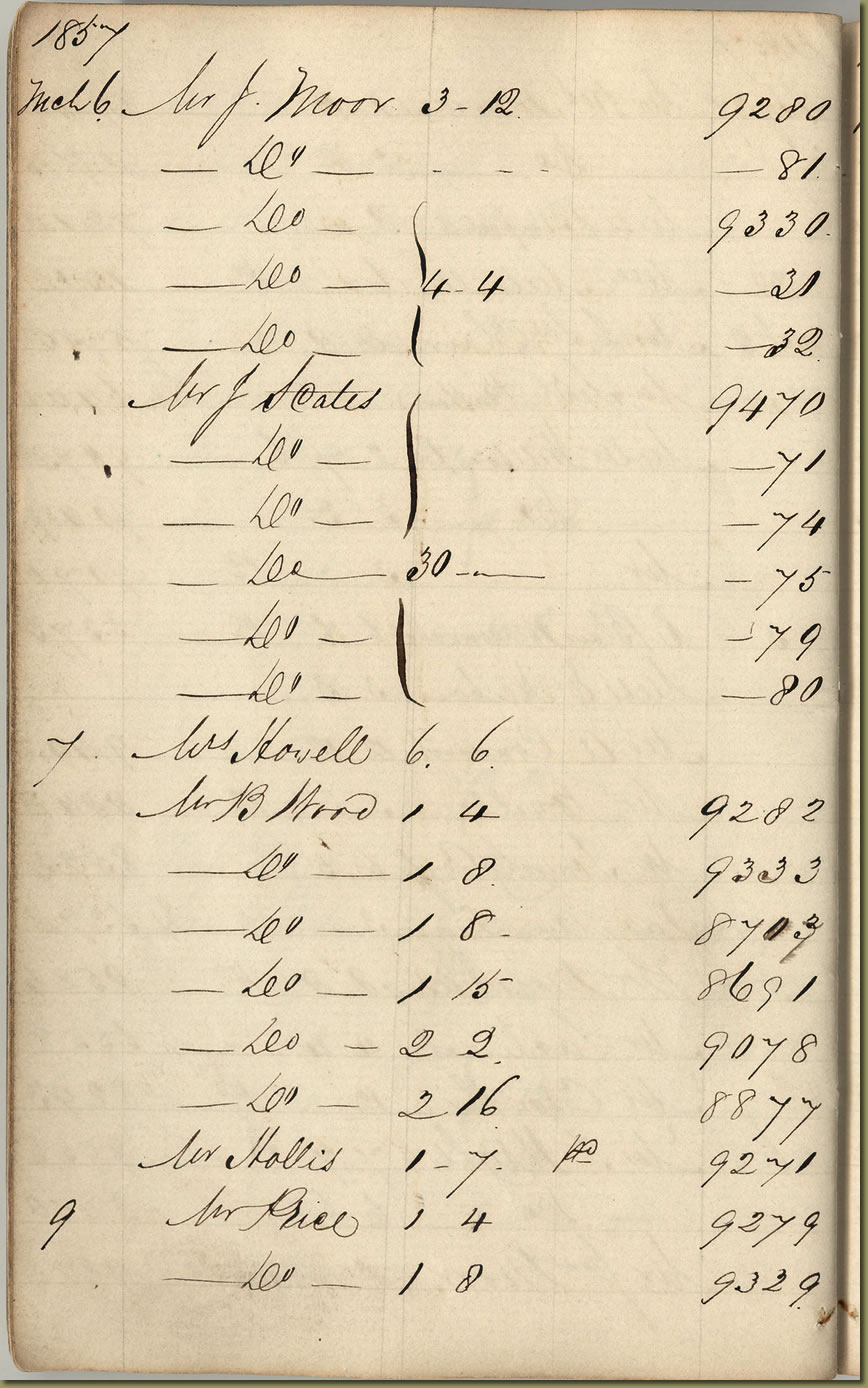 1857
Mch 6. Mr J. Moor 3 - 12. 9280
— Do — - - - — 81.
— Do — 9330.
— Do — 4 - 4 — 31
— Do — — 32.
Mr J Scates 9470
— Do — — 71
— Do — — 74
— Do — 30 - — — 75
— Do — — 79
— Do — — 80
7 Mrs Howell 6. 6.
Mr B Wood 1 4 9282
— Do — 1 8. 9333
— Do — 1 8 - 8703
— Do — 1 15 8691
— Do — 2 2. 9078
— Do — 2 16 8877
Mr Hollis 1 - 7. 9271
9 Mr Price 1 4 9279
— Do — 1 8 9329.